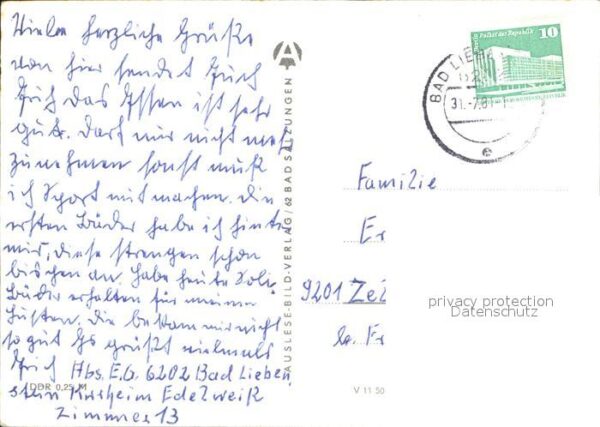 Viele herzliche Grüße
von hier sendet Euch
Euch das Essen ist sehr
gut. Darf nur nicht mehr
zunehmen sonst muß
ich Sport mitmachen. die
ersten Bäder habe ich hinter
mir, diese strengen schon
bischen an. habe heute Soli
Bäder erhalten für meine
Husten. die bekom mir nicht
so gut Es grüßt vielmals
Erich Abs. E.G. 6202 Bad Lieben
stein Kurheim Edelweiß
Zimmer 13
DDR 0,25 M
AUSLESE-BILD-VERLAG / 62 BAD SALZUNGEN
V 11 50
BAD LIEBE
31.-7.8
e
Berlin, Palast der Republik
10
Familie
Er
9201 Zet
b. Fr
privacy protection
Datenschutz